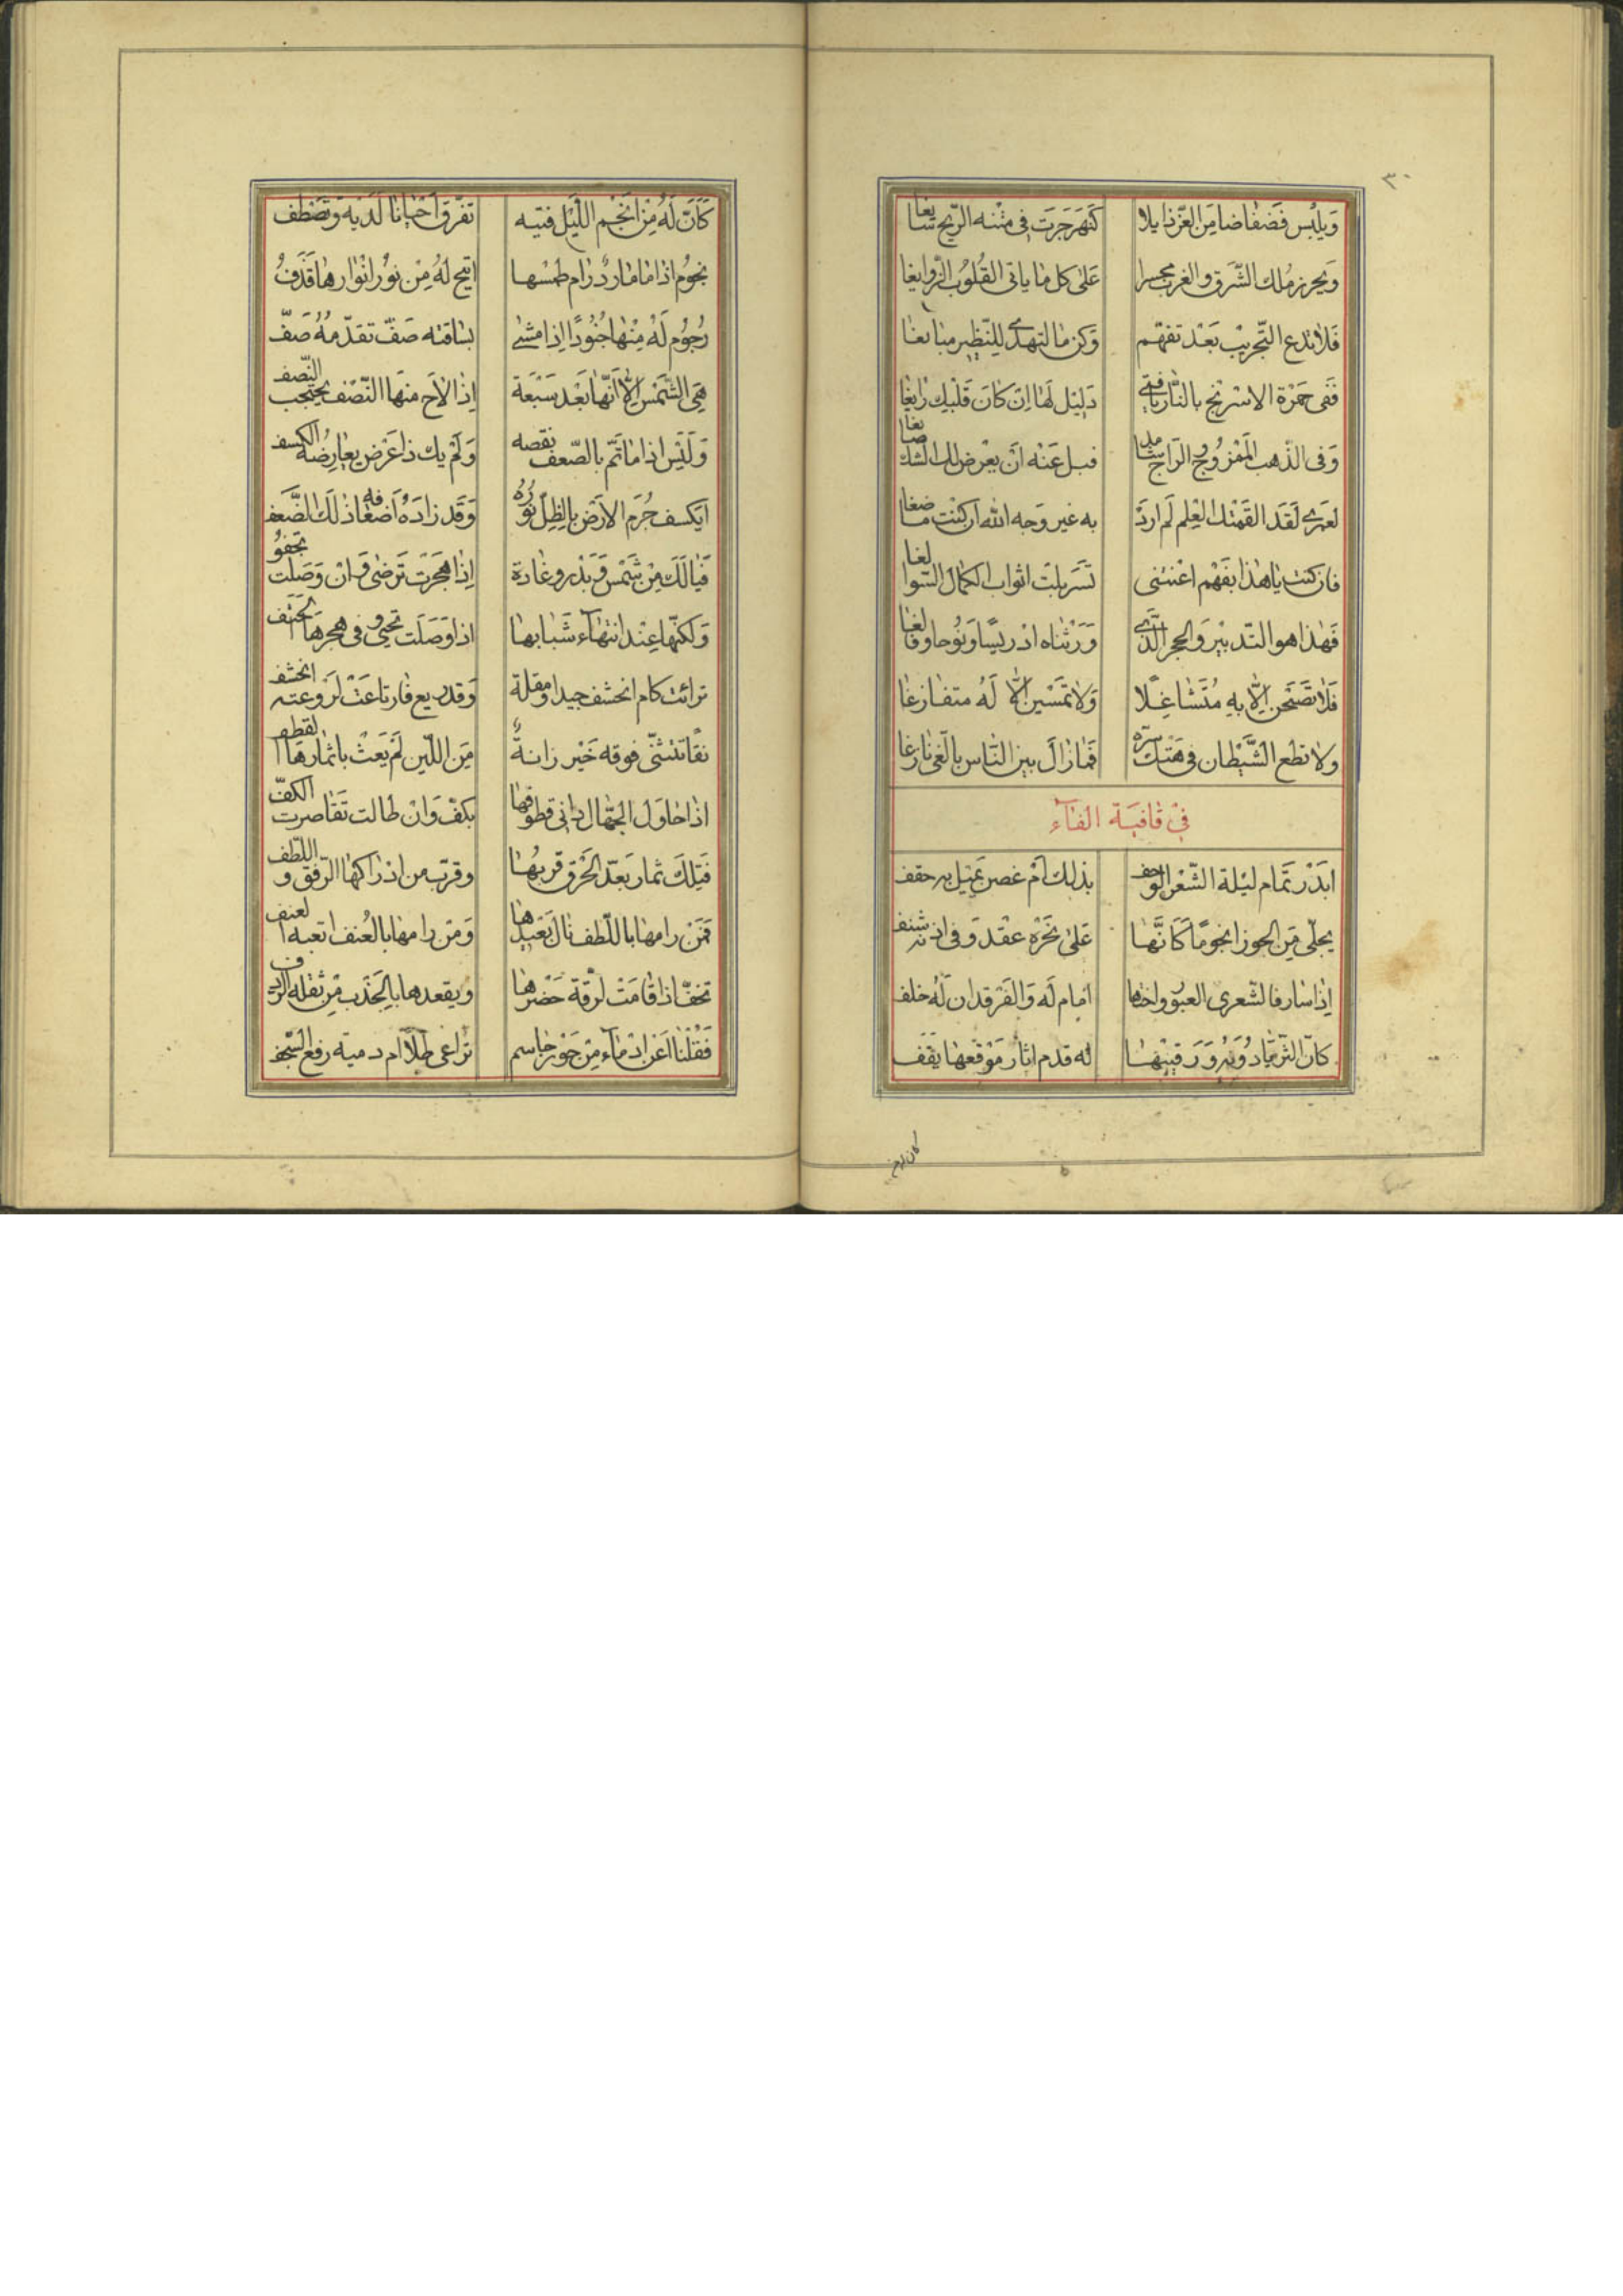 ٣٠
وَيلْبس فَضفاضا مِنَ العّز ذايلا كَنَهرَ جَرَت فى متْنه الرّيح سايغا
وَيحرز مُلك الشّرق والغرب عَلىٰ كل ما ياتى القُلوُب الزّوايغا
فَلا تدع التّجريبْ بَعْد تفهّم وَكن
فَفى حمْرة الاسْرنج بالنّار دَليْل لَها اِن كانَ قَلْبك زايغا
وَفى الذّهب المَمْزوُج قبل عَنْه اَن يعْرض لك الشك صابغا
لعَمرى لَقَد القمْتك العِلم لم ارَدْ به غير وَجه الله ان كنْت ماضغا
فان كنت يا هٰذا بفَهْم اغثتنى تسَربلتَ اثواب الكمال السّوابغا
فَهٰذا هو التّدبيْر وَالحجر الّذى وَرَثناه ادْريسًا وَنوُحا وفالغا
فَلا تصَبحَن اِلّا بهِ مُتَشاغِلًا وَلا تمسْين الّا لَهُ متفارغا
ولا تطع الشَّيْطان فى هَتْك سرّه فَمازالَ بين النّاس بالغى نازغا
فى قافيَة الفآء
ابَدْر تمَام ليْلة الشّعْر الوَحف بذلك اَم غصن يميْل به حقف
يحلّى مِن الجوزا نجومًا كَانَّها عَلىٰ نحْره عقْد وَفى اذنه شنف
اِذا سارفا لشّعرى العبوُر واختها امام لَه وَالفَرقدان لَهُ خلف
كانّ الثريّا لَه قدم اثار مَوْقعها يقَف
كان له من
كَاَنّ لَهُ مِن اَنجْم اللّيْل فتيه تفَرّق اَحْيانا لَديْه وَتصْطف
نجوُم اذا ما ماردٌ رام طمْسها اتيح لهُ مِنْ نوُر انْوارها قَذفُ
رجوُم لَهُ مِنْها جُنوُدًا اِذا مشىٰ بساقته صَفّ تقدّمهُ صَفّ
هِىَ الشَّمْس اِلّا اَنّها بَعْد سَبْعَة اِذا لاح منهَا النّصْف يحتجب النّصف
وَلَيْس اذا ما تّم بالضّعف نقصه وَلَمْ يك ذا عَرْض يعارضهُ الكسف
ايَكسف جُرَم الارْض بالظل نوُرُه وَقَد زادَهُ اَضعْافه ذلك الضّعف
فَيا لَكَ مِن شَمْس وَبَدْر وغادة اِذا هجَرتَ تَرضى وَ انْ وَصَلَت تجفوُ
وَلكنّها عِنْد انْتهاء شبابها اذا وَصَلَت تحيى وفى هجرها الحتف
ترائت كام الخشف جيدا ومقلة وَقد ريع فارتاعَتْ لرَوعته الخشف
نقًا تتثنّى فوقه خَيْزرانةٌ مِنَ اللّين لَمْ يَعبَثْ باثمارها القطف
اذا حاوَلَ الجهّال دانى قطوُفها بكفّ وَانْ طالت تَقاصرت الكفّ
فَتِلْكَ ثمار بَعّد الخرق قربهُا وقرّب من ادْراكها الرّفق وَ اللّطف
فَمَن رامها باللّطف نال وَمَن رامها بالعُنف اتعبه العنف
تخفّ اذا قامَتْ لرقة خَصْرها ويقعدها بالجَذب مِن ثقله الرّدف
فَقُلنا اَغَر ادْمآء مِن جَوْ جاسم ترُاعى طلًا ام دميَة رفع السّجف